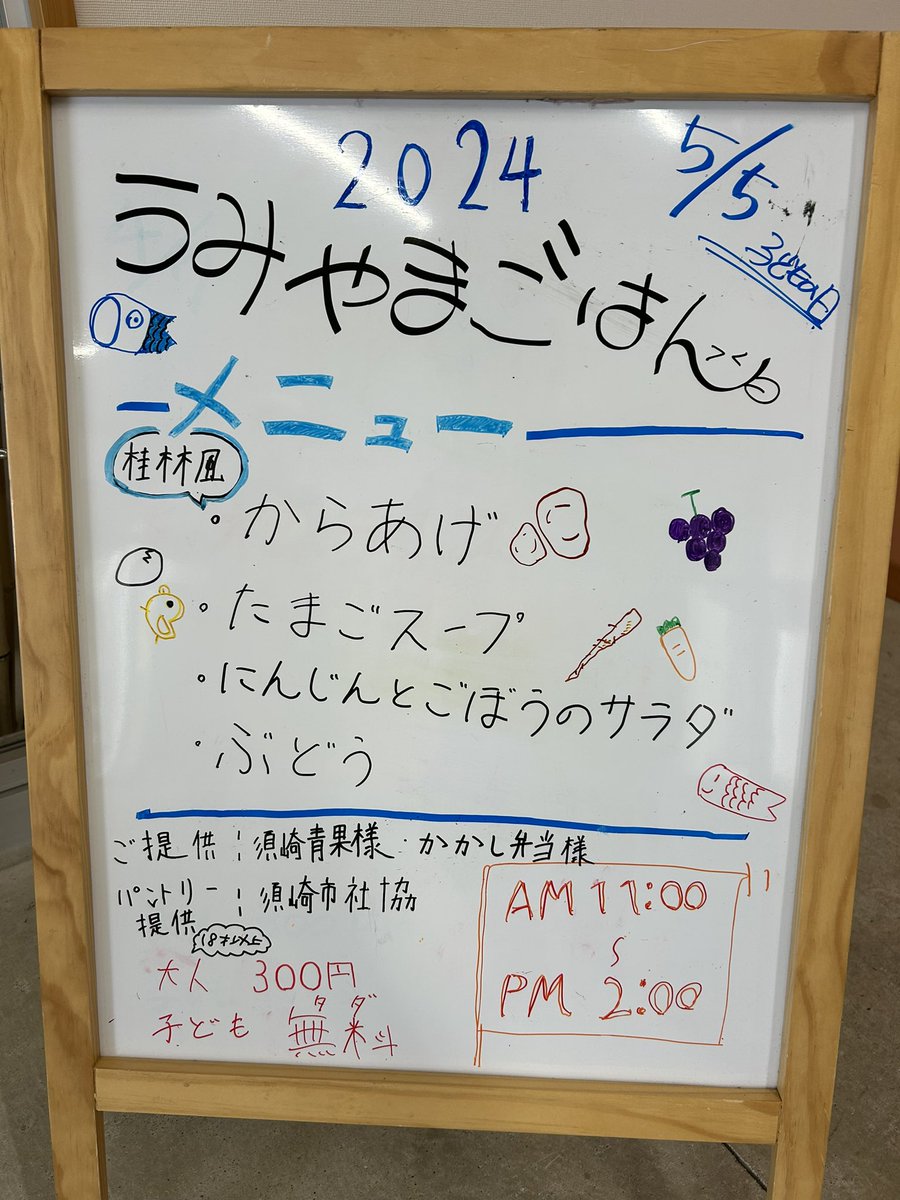 2024
5/5
こどもの日
うみやまごはん
つくし
メニュー
桂林風
・からあげ
・たまごスープ
・にんじんとごぼうのサラダ
・ぶどう
ご提供：須崎青果様・かかし弁当様
パントリー提供：須崎市社協
18才以上
大人 300円
タダ
子ども 無料
AM 11:00
~
PM 2:00